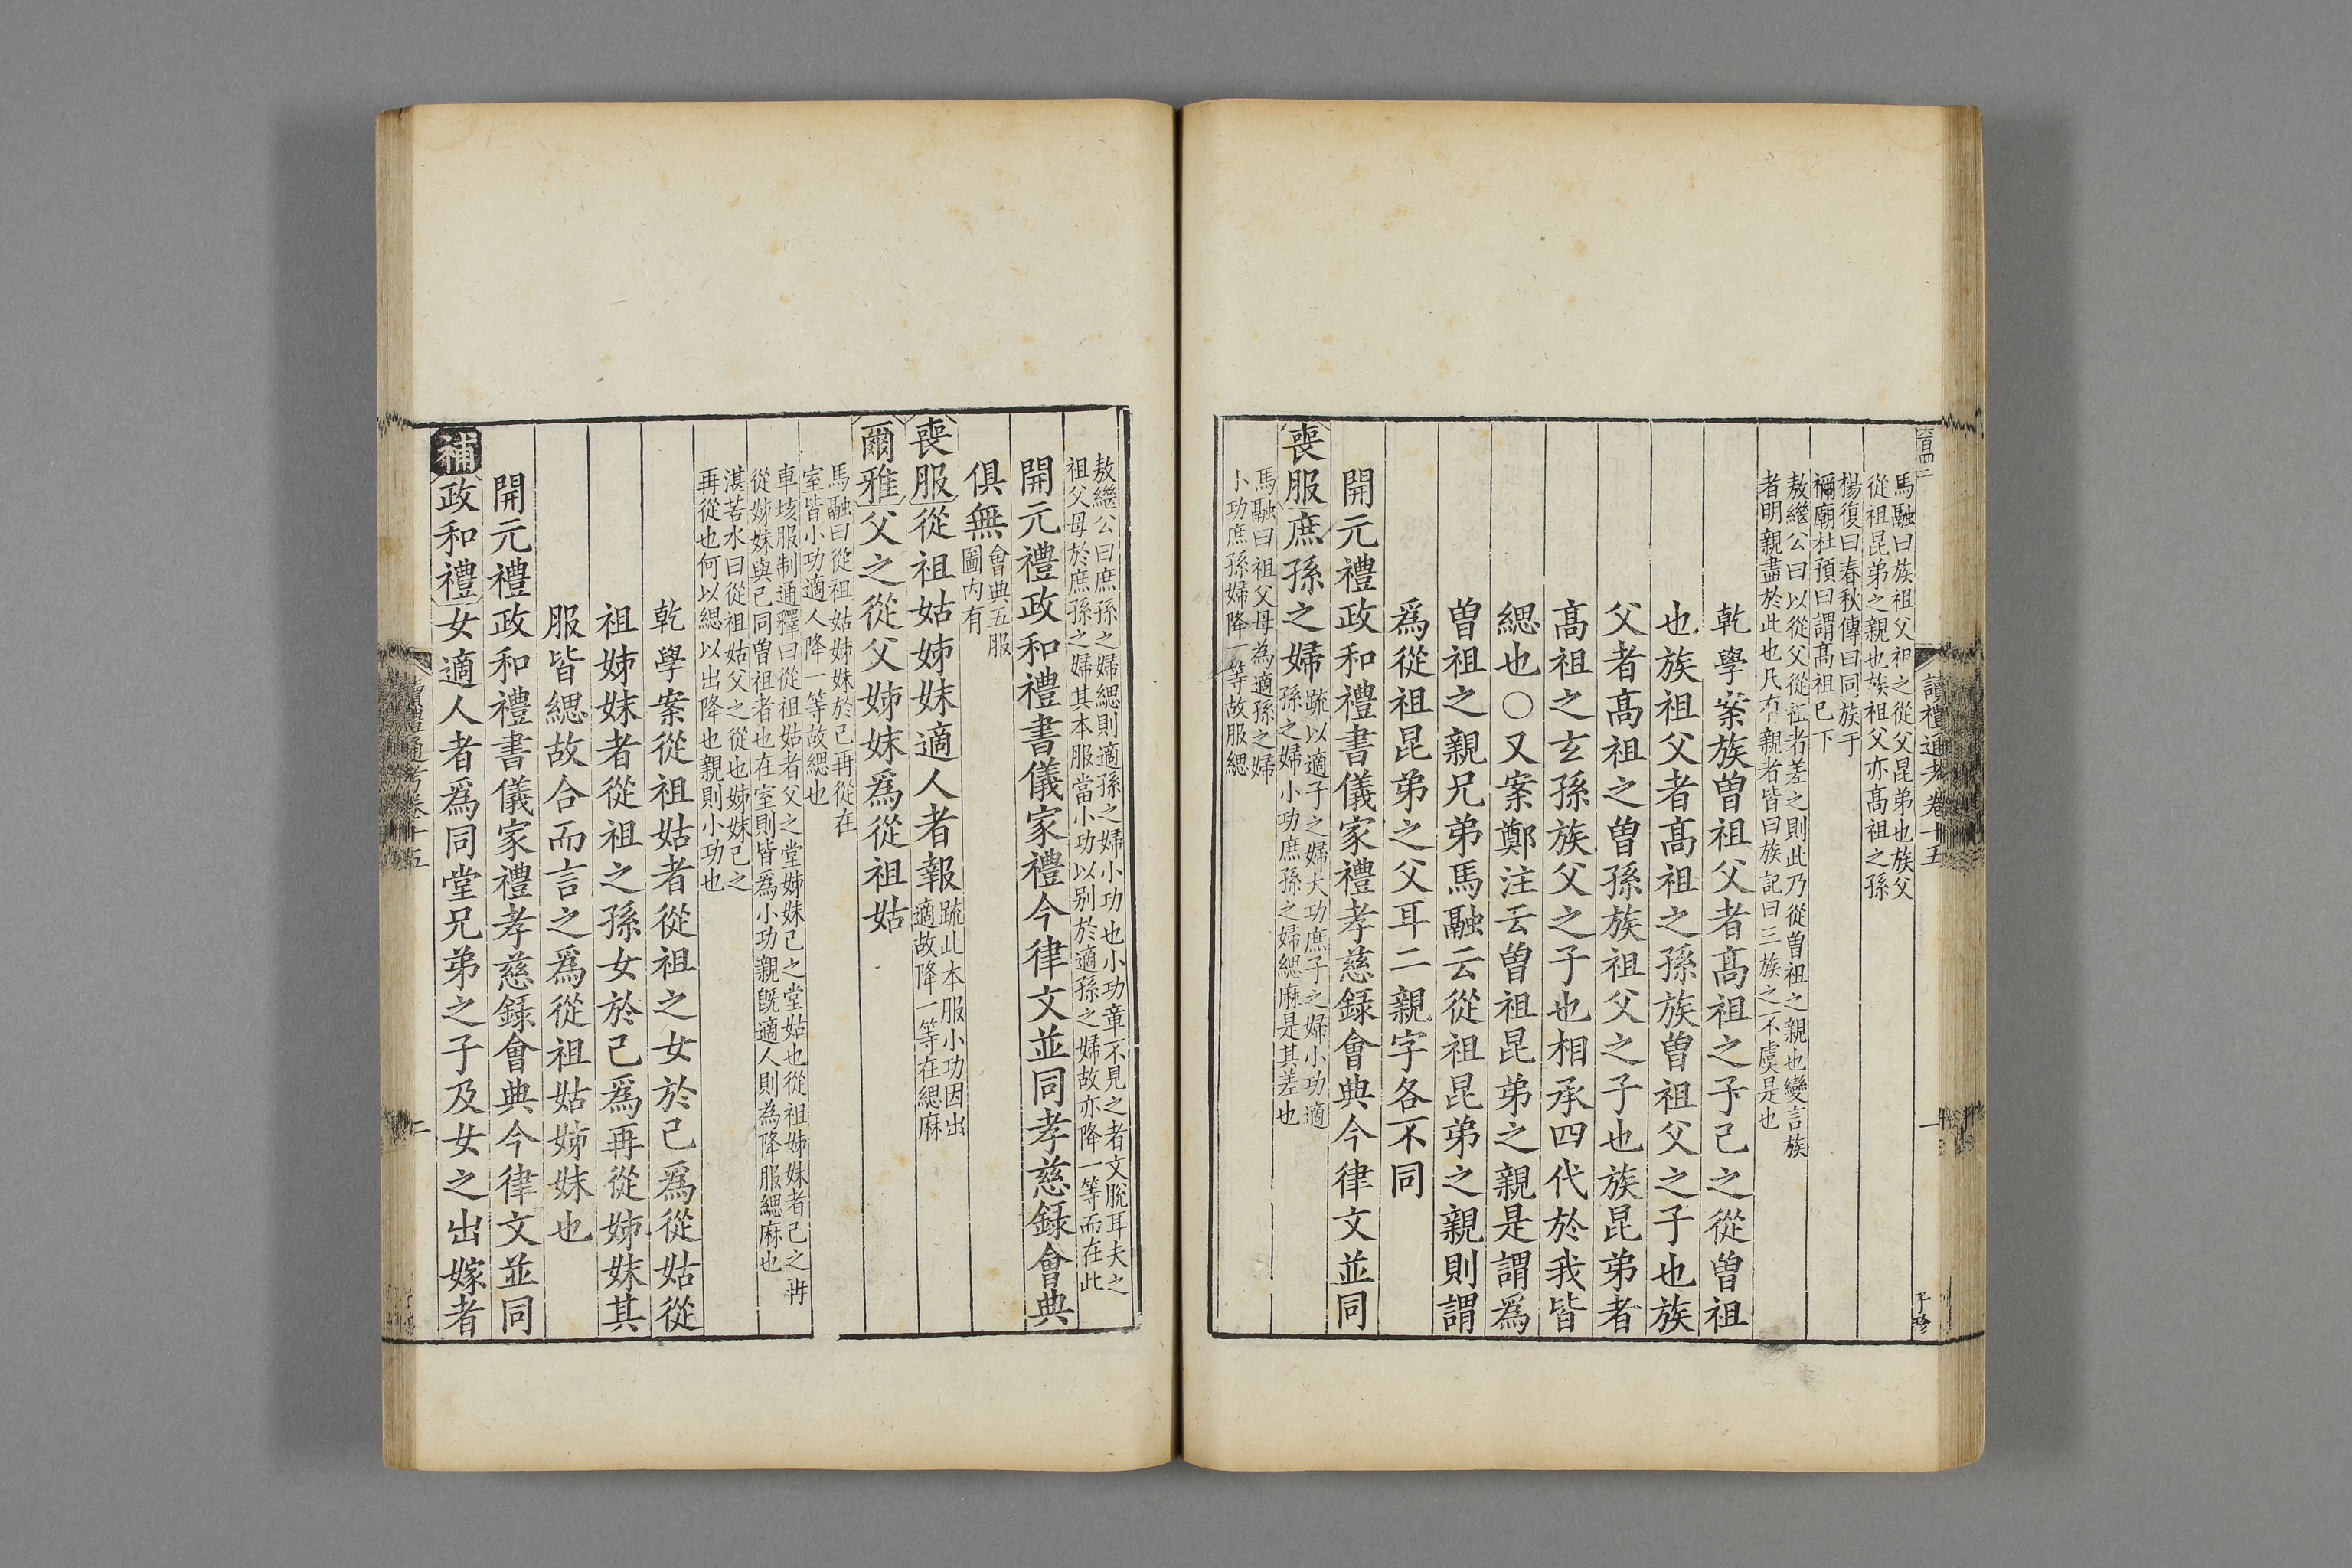 讀禮通考卷十五
一
子珍
馬融曰族祖父祖之從父昆弟也族父
從祖昆弟之親也族祖父亦髙祖之孫
楊復曰春秋傳曰同族于
禰廟杜預曰謂髙祖已下
敖繼公曰以從父從祖者差之則此乃從曾祖之親也變言族
者明親盡於此也凡有親者皆曰族記曰三族之不虞是也
乾學案族曾祖父者髙祖之子己之從曾祖
也族祖父者髙祖之孫族曾祖父之子也族
父者髙祖之曾孫族祖父之子也族昆弟者
髙祖之玄孫族父之子也相承四代於我皆
緦也○又案鄭注云曾祖昆弟之親是謂爲
曾祖之親兄弟馬融云從祖昆弟之親則謂
爲從祖昆弟之父耳二親字各不同
開元禮政和禮書儀家禮孝慈録會典今律文並同
喪服庶孫之婦
疏以適子之婦大功庶子之婦小功適
孫之婦小功庶孫之婦緦麻是其差也
馬融曰祖父母為適孫之婦
小功庶孫婦降一等故服緦
敖繼公曰庶孫之婦緦則適孫之婦小功也小功章不見之者文脫耳夫之
祖父母於庶孫之婦其本服當小功以别於適孫之婦故亦降一等而在此
開元禮政和禮書儀家禮今律文並同孝慈録會典
俱無
會典五服
圖内有
喪服從祖姑姊妹適人者報
疏此本服小功因出
適故降一等在緦麻
爾雅父之從父姊妹爲從祖姑
馬融曰從祖姑姊妹於己再從在
室皆小功適人降一等故緦也
車垓服制通釋曰從祖姑者父之堂姊妹己之堂姑也從祖姊妹者己之再
從姊妹與己同曾祖者也在室則皆爲小功親旣適人則為降服緦麻也
湛若水曰從祖姑父之從也姊妹己之
再從也何以緦以出降也親則小功也
乾學案從祖姑者從祖之女於己爲從姑從
祖姊妹者從祖之孫女於己爲再從姊妹其
服皆緦故合而言之爲從祖姑姊妹也
開元禮政和禮書儀家禮孝慈録會典今律文並同
補政和禮女適人者爲同堂兄弟之子及女之出嫁者
讀禮通考卷十五
二